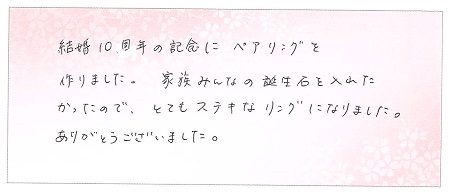 結婚10周年の記念に ペアリングを
作りました。 家族みんなの誕生石を入れた
かったので、とてもステキなリングになりました。
ありがとうございました。